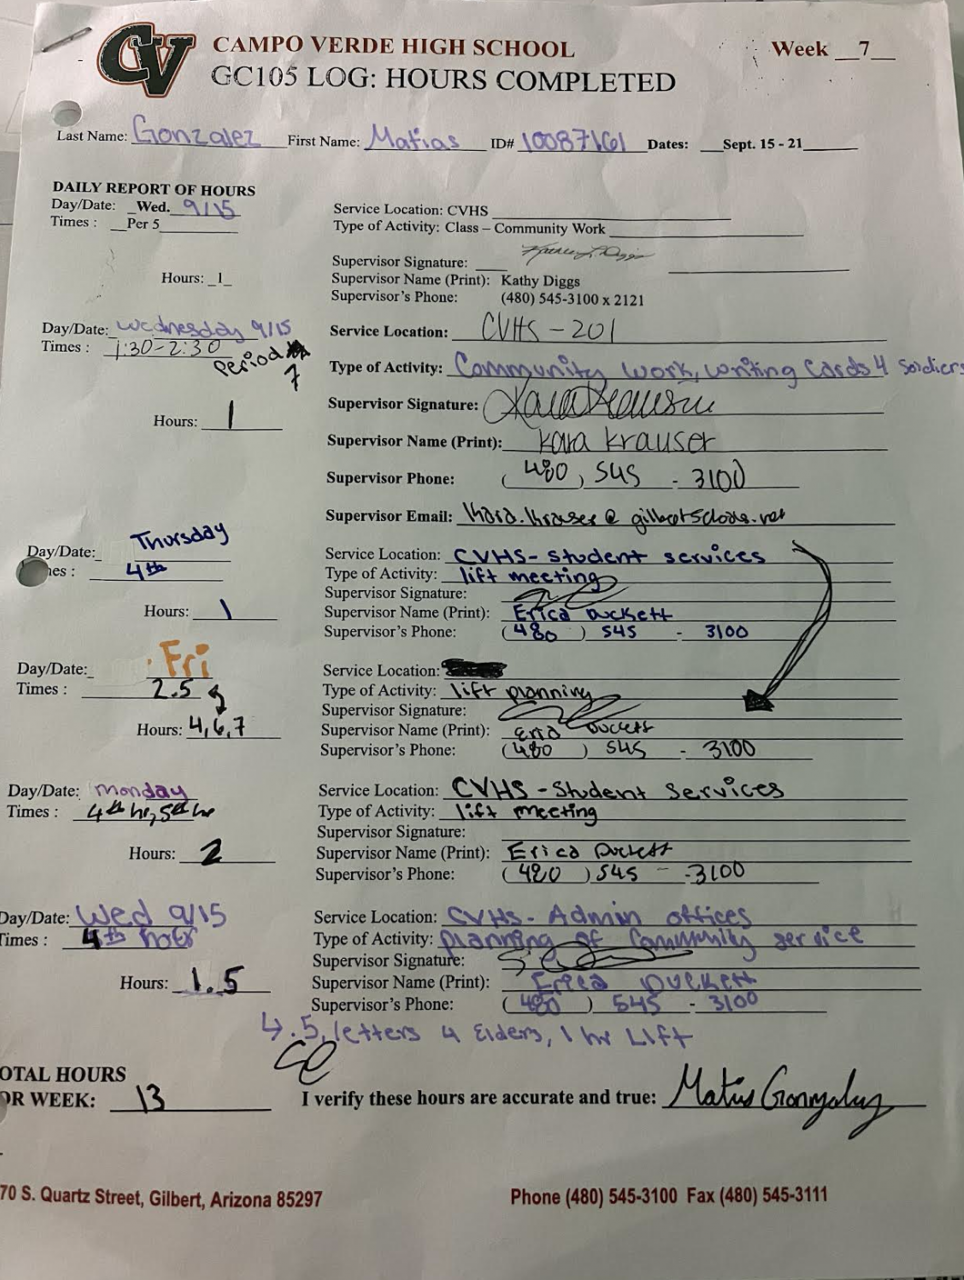 CV CAMPO VERDE HIGH SCHOOL Week 7
GC105 LOG: HOURS COMPLETED
Last Name: Gonzalez First Name: Matias ID# 10087161 Dates: Sept. 15 - 21
DAILY REPORT OF HOURS
Day/Date: Wed. 9/15
Times : Per 5
Service Location: CVHS
Type of Activity: Class – Community Work
Supervisor Signature:
Hours: 1
Supervisor Name (Print): Kathy Diggs
Supervisor's Phone: (480) 545-3100 x 2121
Day/Date: Wednesday 9/15
Times : 1:30-2:30
Period 7
Service Location: CVHS - 201
Type of Activity: Community work, writing cards 4 soldiers
Hours: 1
Supervisor Signature:
Supervisor Name (Print): Kara Krauser
Supervisor Phone: (480) 545 - 3100
Supervisor Email:
Day/Date: Thursday
mes : 4th
Service Location: CVHS- Student services
Type of Activity: lift meeting
Supervisor Signature:
Hours: 1
Supervisor Name (Print): Erica Duckett
Supervisor's Phone: (480) 545 - 3100
Day/Date: Fri
Times : 2.5
Service Location:
Type of Activity: lift planning
Supervisor Signature:
Hours: 4,6,7
Supervisor Name (Print): Duckett
Supervisor's Phone: (480) 545 - 3100
Day/Date: Monday
Times : 4th hr, 5th hr
Service Location: CVHS - Student Services
Type of Activity: lift meeting
Supervisor Signature:
Hours: 2
Supervisor Name (Print): Erica Duckett
Supervisor's Phone: (480) 545 - 3100
Day/Date: Wed 9/15
Times : 4th hour
Service Location: CVHS- Admin offices
Type of Activity: planning of community service
Supervisor Signature:
Hours: 1.5
Supervisor Name (Print): Erica Duckett
Supervisor's Phone: (480) 545 - 3100
4.5, letters 4 Elders, 1 hr Lift
OTAL HOURS
OR WEEK: 13
I verify these hours are accurate and true: Matias Gonzalez
70 S. Quartz Street, Gilbert, Arizona 85297
Phone (480) 545-3100 Fax (480) 545-3111